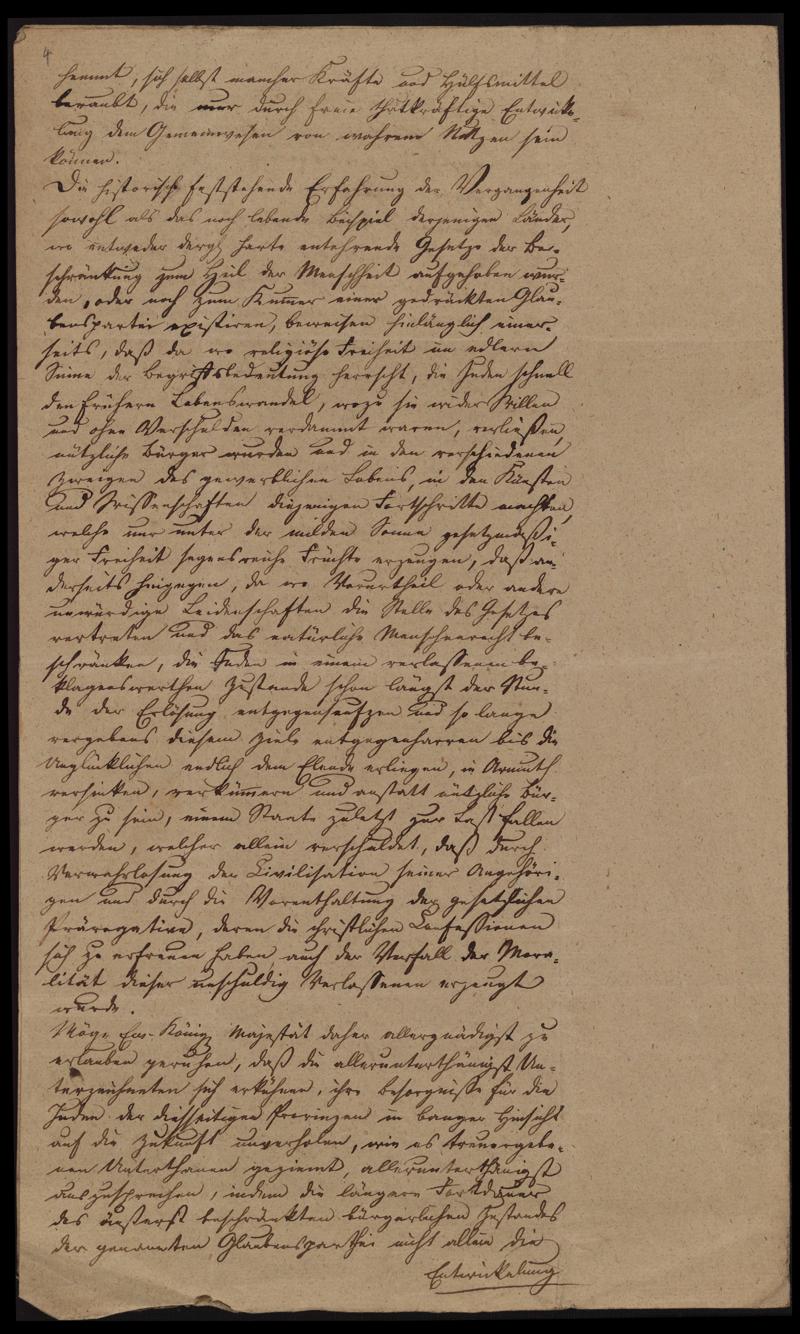 4
hemmt, sich selbst mancher Kräfte und Hülfsmittel
beraubt, die nur durch freie thatkräftige Entwicke-
lung dem Gemeinwesen von wahrem Nutzen sein
können.
Die historisch feststehende Erfahrung der Vergangenheit
sowohl als das noch lebende Beispiel derjenigen Länder,
wo entweder dergl. harte entehrende Gesetze der Be-
schränkung zum Heil der Menschheit aufgehoben wur-
den, oder noch zum Kummer einer gedrückten Glau-
benspartei existiren, beweisen hinlänglich einer-
seits, daß da wo religiöse Freiheit im edlern
Sinne der Begriffsbedeutung herrscht, die Juden schnell
den frühern Lebenswandel, wozu sie wider Willen
und ohne Verschulden verdammt waren, verließen,
nützliche Bürger wurden und in den verschiedenen
Zweigen des gewerblichen Lebens, in den Künsten
und Wissenschaften diejenigen Fortschritte machten,
welche nur unter der milden Sonne gesetzmäßi-
ger Freiheit segensreiche Früchte erzeugen, daß an-
derseits hingegen, da wo Vorurtheil oder andere
unwürdige Leidenschaften die Stelle des Gesetzes
vertreten und das natürliche Menschenrecht be-
schränken, die Juden in einem verlassenen be-
klagenswerthen Zustande schon längst der Stun-
de der Erlösung entgegenseufzen und so lange
vergebens diesem Ziele entgegenharren bis die
Unglücklichen endlich dem Elende erliegen, in Armuth
versinken, verkümmern und anstatt nützliche Bür-
ger zu sein, einem Staate zuletzt zur Last fallen
werden, welcher allein verschuldet, daß durch
Verwahrlosung der Civilisation seiner Angehöri-
gen und durch die Vorenthaltung der gesetzlichen
Prärogative, deren die christlichen Confessionen
sich zu erfreuen haben, auch der Verfall der Mora-
lität dieser unschuldig Verlassenen erzeugt
wurde.
Möge Ew. Königl. Majestät daher allergnädigst zu
erlauben geruhen, daß die allerunterthänigst Un-
terzeichneten sich erkühnen, ihre Besorgnisse für die
Juden der diesseitigen Provinzen in banger Hinsicht
auf die Zukunft unverholen, wie es treuergebe-
nen Unterthanen geziemt, allerunterthänigst
auszusprechen, indem die längere Fortdauer
des äußerst beschränkten bürgerlichen Zustandes
der genannten Glaubensparthei nicht allein die
Entwickelung